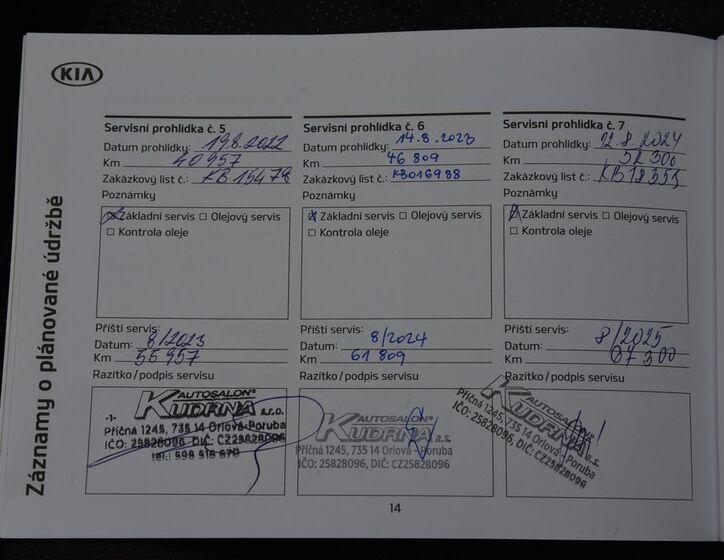 KIA
Záznamy o plánované údržbě
Servisní prohlídka č. 5
Datum prohlídky: 19.8.2022
Km 40957
Zakázkový list č.: KB 15478
Poznámky
Základní servis Olejový servis
Kontrola oleje
Příští servis:
Datum: 8/2023
Km 55957
Razítko/podpis servisu
AUTOSALON®
KUDRNA s.r.o.
-1-
Příčná 1245, 735 14 Orlová-Poruba
IČO: 25828096, DIČ: CZ25828096
tel.: 596 516 670
Servisní prohlídka č. 6
Datum prohlídky: 14.8.2023
Km 46 809
Zakázkový list č.: KB016988
Poznámky
Základní servis Olejový servis
Kontrola oleje
Příští servis:
Datum: 8/2024
Km 61 809
Razítko/podpis servisu
AUTOSALON®
KUDRNA a.s.
Příčná 1245, 735 14 Orlová - Poruba
IČO: 25828096, DIČ: CZ25828096
Servisní prohlídka č. 7
Datum prohlídky: 12.8.2024
Km 52 300
Zakázkový list č.: KB18355
Poznámky
Základní servis Olejový servis
Kontrola oleje
Příští servis:
Datum: 8/2025
Km 67 300
Razítko/podpis servisu
AUTOSALON
KUDRNA a.s.
Příčná 1245, 735 14 Orlová - Poruba
IČO: 25828096, DIČ: CZ25828096
14